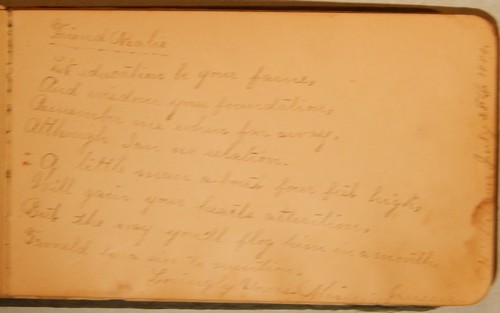 Friend Nealie
Let education be your fame,
And wisdom your foundation,
Remember me when far away,
Although I am no relation.
A little man about four feet high,
Will gain your hearts attention,
But the way you'll flog him in a month,
Would be a sin to mention.
Lovingly Yours